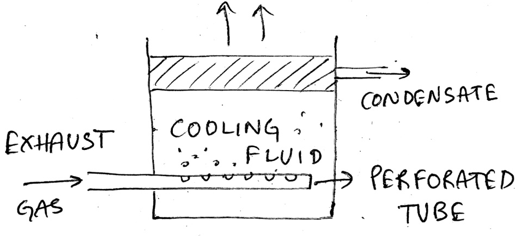 CONDENSATE
COOLING
FLUID
EXHAUST
GAS
PERFORATED
TUBE